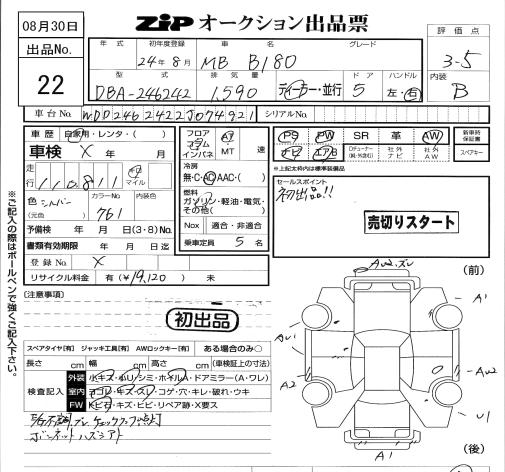 08月30日
出品No.
22
ZIP オークション出品票
評価点
3-5
内装
B
年式 初年度登録 車名 グレード
24年8月 MB B180
型式 排気量 ドア ハンドル
DBA-246242 1,590 ディーラー・並行 5 左・右
車台No. WDD2462422J074921 シリアルNo.
車歴 自家用・レンタ・( )
車検 X 年 月
走行 110,811 km マイル
色 シルバー (元色) カラーNo. 761 内装色
予備検 年 月 日(3・8)No.
書類有効期限 年 月 日迄
登録No. X
リサイクル料金 有(¥19,120) 未
フロア コラム インパネ AT MT 速
冷房
無・C・AC・AAC・( )
燃料
ガソリン・軽油・電気・その他( )
Nox 適合・非適合
乗車定員 5 名
PS PW SR 革 AW
ナビ エアB 社外ナビ 社外AW
新車時保証書
スペアキー
※上記太枠内は標準装備品
セールスポイント
初出品!!
売切りスタート
(注意事項)
初出品
スペアタイヤ[有] ジャッキ工具[有] AWロックキー[有] ある場合のみ○
長さ cm 幅 cm 高さ cm (車検証上の寸法)
検査記入
外装 小キズ・凹リ・シミ・ホイルA・ドアミラー(A・ワレ)
室内 ヨゴレ・キズ・スレ・コゲ・穴・キレ・破れ・ウキ
FW トビ石・キズ・ヒビ・リペア跡・X要ス
ボンネットハズシアト
(前)
A1
AU2
A1
AU1
A2
U1
A1
(後)
※ご記入の際はボールペンで強くご記入下さい。